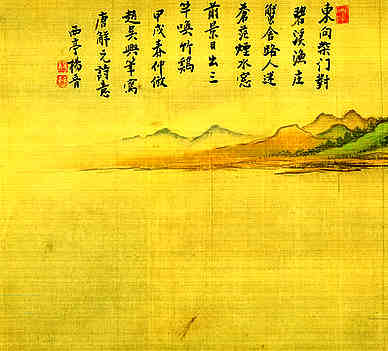 東向柴门對
碧溪漁庄
蟹舍路人迷
蒼茫煙水窓
前景日出三
竿喚竹鷄
甲戌春仲倣
趙吳興筆寓
唐解元詩意
西亭楊晋